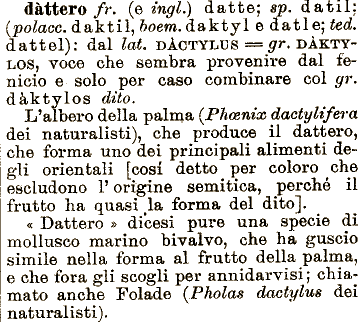 dàttero fr. (e ingl.) datte; sp. datil:
(polacc. daktil, boem. daktyl e datle; ted.
dattel): dal lat. DÀCTYLUS = gr. DÀKTY-
LOS, voce che sembra provenire dal fe-
nicio e solo per caso combinare col gr.
dàktylos dito.
L'albero della palma (Phœnix dactylifera
dei naturalisti), che produce il dattero,
che forma uno dei principali alimenti de-
gli orientali [cosí detto per coloro che
escludono l'origine semitica, perché il
frutto ha quasi la forma del dito].
« Dattero » dicesi pure una specie di
mollusco marino bivalvo, che ha guscio
simile nella forma al frutto della palma,
e che fora gli scogli per annidarvisi; chia-
mato anche Folade (Pholas dactylus dei
naturalisti).